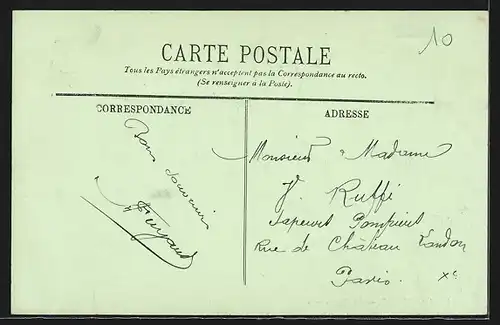 10
CARTE POSTALE
Tous les Pays étrangers n'acceptent pas la Correspondance au recto.
(Se renseigner à la Poste).
CORRESPONDANCE
Bon souvenir
ADRESSE
Monsieur Madame
V. Ruffi
Sapeurs Pompiers
Rue de Château Landon
Paris. Xe